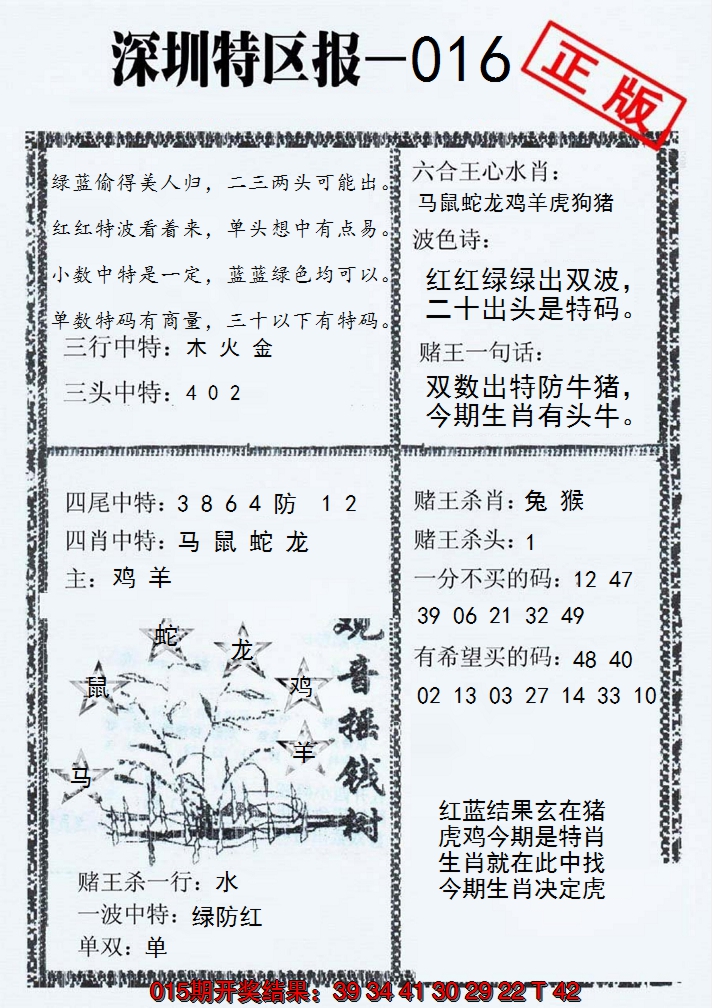 深圳特区报—016
正版
绿蓝偷得美人归，二三两头可能出。
红红特波看着来，单头想中有点易。
小数中特是一定，蓝蓝绿色均可以。
单数特码有商量，三十以下有特码。
三行中特：木 火 金
三头中特：4 0 2
六合王心水肖：
马鼠蛇龙鸡羊虎狗猪
波色诗：
红红绿绿出双波，
二十出头是特码。
赌王一句话：
双数出特防牛猪，
今期生肖有头牛。
四尾中特：3 8 6 4 防 1 2
四肖中特：马 鼠 蛇 龙
主：鸡 羊
赌王杀肖：兔 猴
赌王杀头：1
一分不买的码：12 47
39 06 21 32 49
有希望买的码：48 40
02 13 03 27 14 33 10
蛇
龙
鼠
鸡
羊
马
观音摇钱树
红蓝结果玄在猪
虎鸡今期是特肖
生肖就在此中找
今期生肖决定虎
赌王杀一行：水
一波中特：绿防红
单双：单
015期开奖结果：39 34 41 30 29 22 T 42